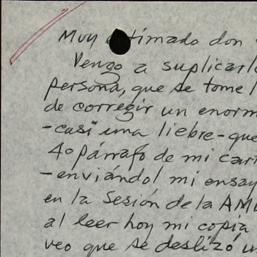 Muy estimado don
Vengo a suplicarl
persona, que se tome l
de corregir un enorm
-casi una liebre- que
4o párrafo de mi car
-enviándol mi ensay
en la Sesión de la AM
al leer hoy mi copia
veo que se deslizó u